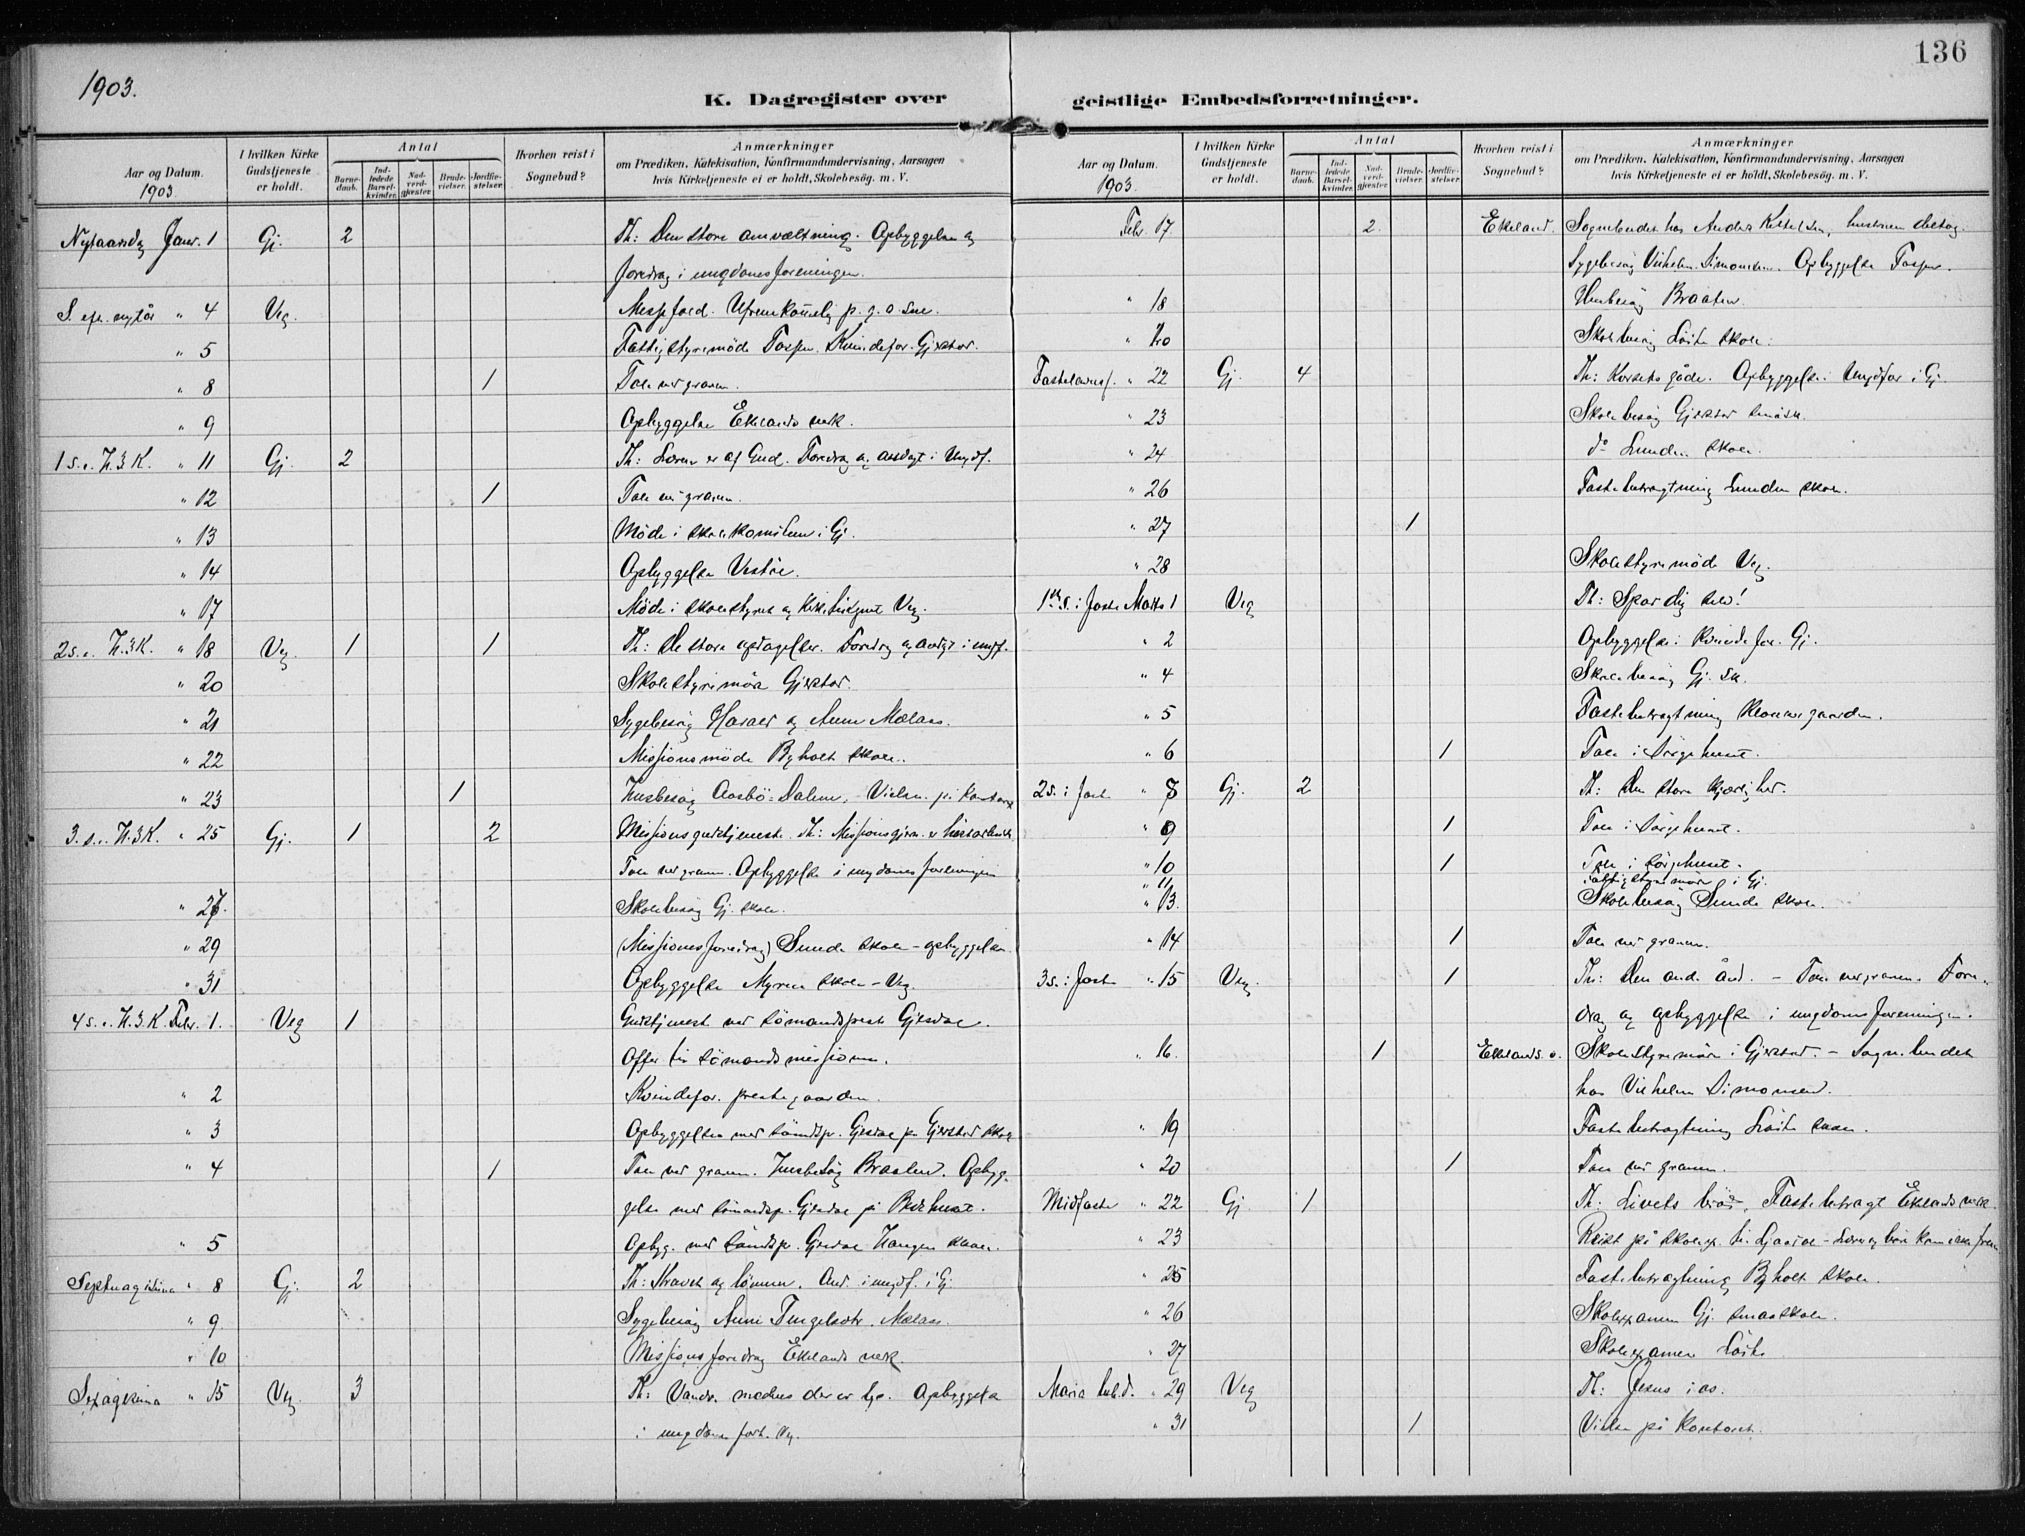 1903.
136
K. Dagregister over geistlige Embedsforretninger.
Aar og Datum. 1903.
I hvilken Kirke Gudstjeneste er holdt.
Antal
Barnedaab.
Indledede Barselkvinder.
Nadverdgjester
Brudevielser.
Jordfæstelser.
Hvorhen reist i Sognebud?
Anmærkninger
om Prædiken, Katekisation, Konfirmandundervisning, Aarsagen
hvis Kirketjeneste ei er holdt, Skolebesøg. m. V.
Nytaarsdag Janr. 1 Gj. 2 Th: Den store omvæltning. Opbyggelse og
foredrag i ungdomsforeningen.
S. eft. nytår " 4 Veg. Messefald. p. g. a. sne.
" 5 Fattigstyremöde Kvindefor. Gjerstad.
" 8 1 Tale ved graven.
" 9 Opbyggelse Ekelands verk.
1 s. e. H.3K. " 11 Gj. 2 Th: Læren er af Gud. Foredrag og andagt i Ungdf.
" 12 1 Tale ved graven.
" 13 Möde i i Gj.
" 14 Opbyggelse
" 17 Möde i skolestyret og Veg.
2 s. e. H.3K. " 18 Veg. 1 1 Th: De store opdagelser. Foredrag og andgt i ungf.
" 20 Skolestyremöde Gjerstad.
" 21 Sygebesög og
" 22 Missionsmöde Byholt skole.
" 23 1 Husbesög Dalen. Vielse på kontoret
3. s. e. H.3K. " 25 Gj. 1 2 Missionsgudstjeneste. Th:
Tale ved graven. Opbyggelse i ungdomsforeningen
" 27. Skolebesög Gj. skole.
" 29 (Missionsforedrag) Sunde skole - opbyggelse
" 31 Opbyggelse Myren skole - Veg.
4 s. e. H.3.K. Febr. 1. Veg 1 Gudstjeneste ved sömandsprest Gjesdal.
Offer til sömandsmissionen.
" 2 Kvindefor. prestegaarden.
" 3 Opbyggelse med sömdspr. Gjesdal på Gjerstad skole
" 4 1 Tale ved graven. Husbesög Braaten. Opbyg-
gelse med sömandspr. Gjesdal på Bedehuset.
" 5 Opbyg. med sömdspr. Gjesdal Haugen skole.
Septuagesima " 8 Gj. 2 Th: Kravet og lönnen. And. i ungdf. i Gj.
" 9 Sygebesög
" 10 Missionsforedrag Ekelands verk.
Sexagesima " 15 Veg. 3 Th: der er Opbyggelse
i ungdoms foren. Veg.
Aar og Datum. 1903.
I hvilken Kirke Gudstjeneste er holdt.
Antal
Barnedaab.
Indledede Barselkvinder.
Nadverdgjester
Brudevielser.
Jordfæstelser.
Hvorhen reist i Sognebud?
Anmærkninger
om Prædiken, Katekisation, Konfirmandundervisning, Aarsagen
hvis Kirketjeneste ei er holdt, Skolebesøg. m. V.
Febr. 17 2. Ekeland. Sognebudet hos Anders Ketelsen, hustruen
Sygebesög Vilhelm Simonsen. Opbyggelse
" 18 Husbesög Braaten
" 20 Skolebesög Löite skole.
Fastelavnss. " 22 Gj. 4 Th: Korsets gåde. Opbyggelse i Ungdfor i Gj.
" 23 Skolebesög Gjerstad småsk.
" 24 do Lunden skole.
" 26 Fastebetragtning Lunden skole.
" 27 1
" 28 Skolestyremöde Veg.
1ste s. i faste Marts 1 Veg Th: Spar dig selv!
" 2 Opbyggelse i Kvindefor. Gj.
" 4 Skolebesög Gj. sk.
" 5 Fastebetragtning
" 6 1 Tale i Sörgehuset.
2 s. i fast. " 8 Gj. 2 Th: Den store kjærlighed.
" 9 1 Tale i Sörgehuset.
" 10 1 Tale i sörgehuset.
" 11 Fattigstyremöde i Gj.
" 13. Skolebesög Sunde skole.
" 14 1 Tale ved graven.
3 s. i fast. " 15 Veg. 1 Th: Den onde ånd. - Tale ved graven. Fore-
drag og opbyggelse i ungdomsforeningen.
" 16. 1 Ekelands. v. Skolestyremöde i Gjerstad. - Sognebudet
hos Vilhelm Simonsen.
" 19 Fastebetragtning Löite skole.
" 20 1 Tale ved graven.
Midfaste " 22 Gj. 1 Th: Livets bröd, Fastebetragt Ekelands verk.
" 23 Reist på skole
" 25 Fastebetragtning Byholt skole.
" 26 Skoleexamen Gj. smaaskole.
" 27 Skoleexamen Löite
Maria bebud. " 29 Veg Th: Jesus
" 31 1 Vielse på kontoret.